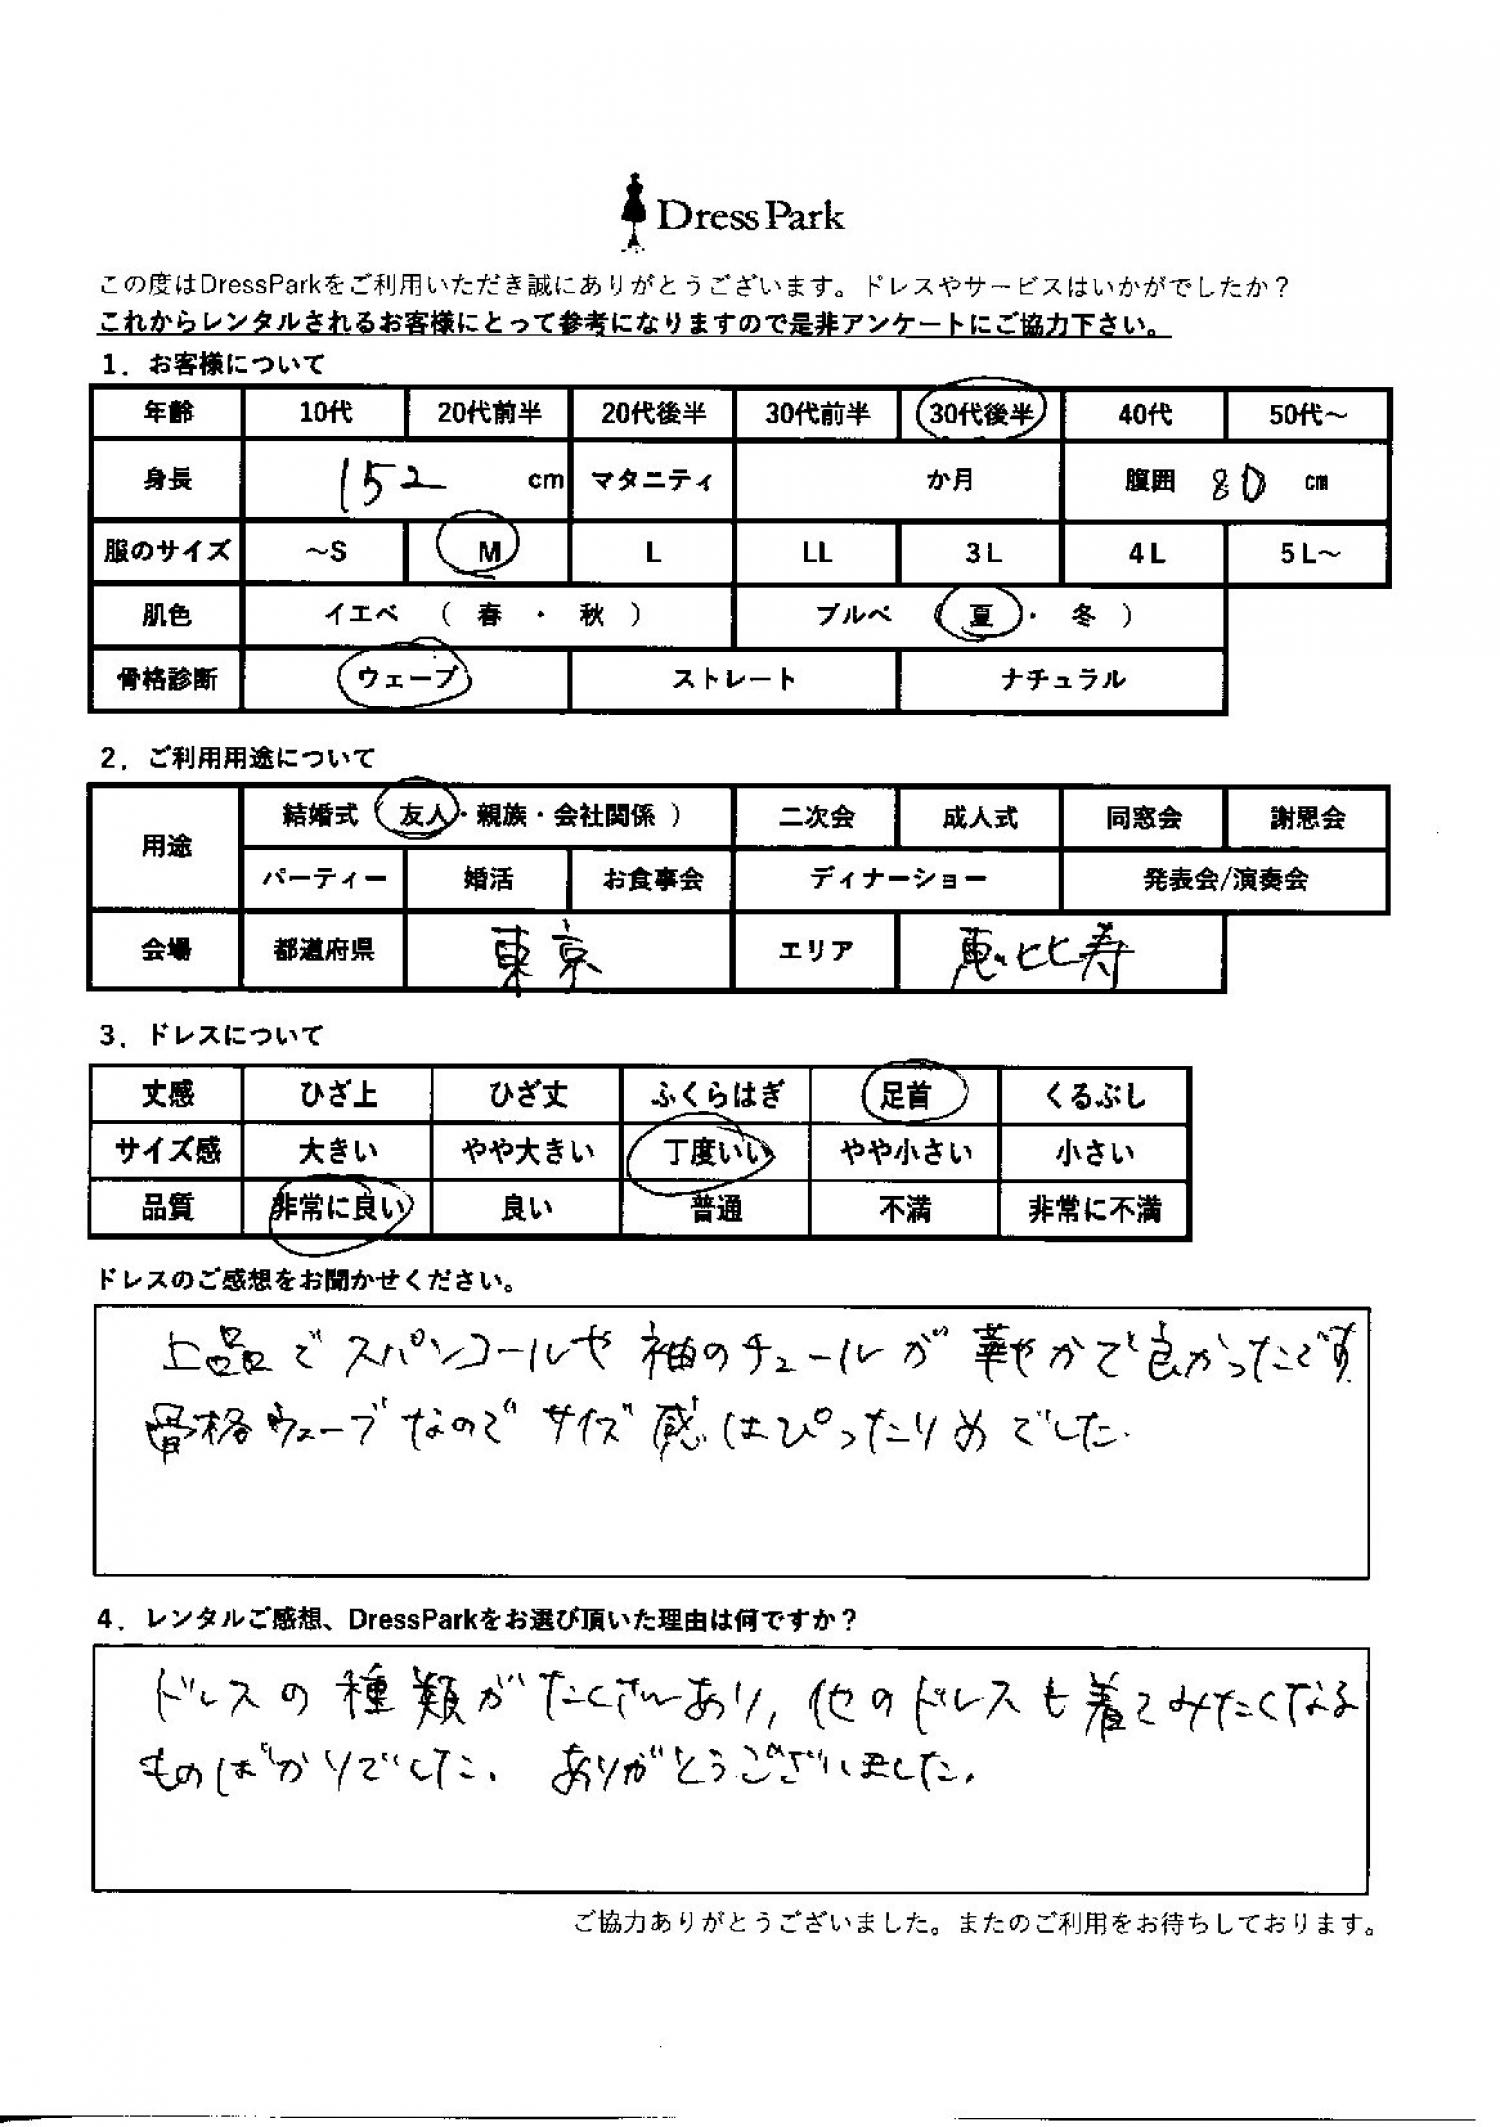 Dress Park
この度はDressParkをご利用いただき誠にありがとうございます。ドレスやサービスはいかがでしたか？
これからレンタルされるお客様にとって参考になりますので是非アンケートにご協力下さい。
1．お客様について
年齢 10代 20代前半 20代後半 30代前半 30代後半 40代 50代～
身長 152 cm マタニティ か月 腹囲 80 cm
服のサイズ ～S M L LL 3L 4L 5L～
肌色 イエベ （ 春 ・ 秋 ） ブルベ （ 夏 ・ 冬 ）
骨格診断 ウェーブ ストレート ナチュラル
2．ご利用用途について
用途 結婚式（ 友人・親族・会社関係 ） 二次会 成人式 同窓会 謝恩会
パーティー 婚活 お食事会 ディナーショー 発表会/演奏会
会場 都道府県 東京 エリア 恵比寿
3．ドレスについて
丈感 ひざ上 ひざ丈 ふくらはぎ 足首 くるぶし
サイズ感 大きい やや大きい 丁度いい やや小さい 小さい
品質 非常に良い 良い 普通 不満 非常に不満
ドレスのご感想をお聞かせください。
上品でスパンコールや袖のチュールが華やかで良かったです
骨格ウェーブなのでサイズ感はぴったりめでした.
4．レンタルご感想、DressParkをお選び頂いた理由は何ですか？
ドレスの種類がたくさんあり, 他のドレスも着てみたくなる
ものばかりでした. ありがとうございました.
ご協力ありがとうございました。またのご利用をお待ちしております。